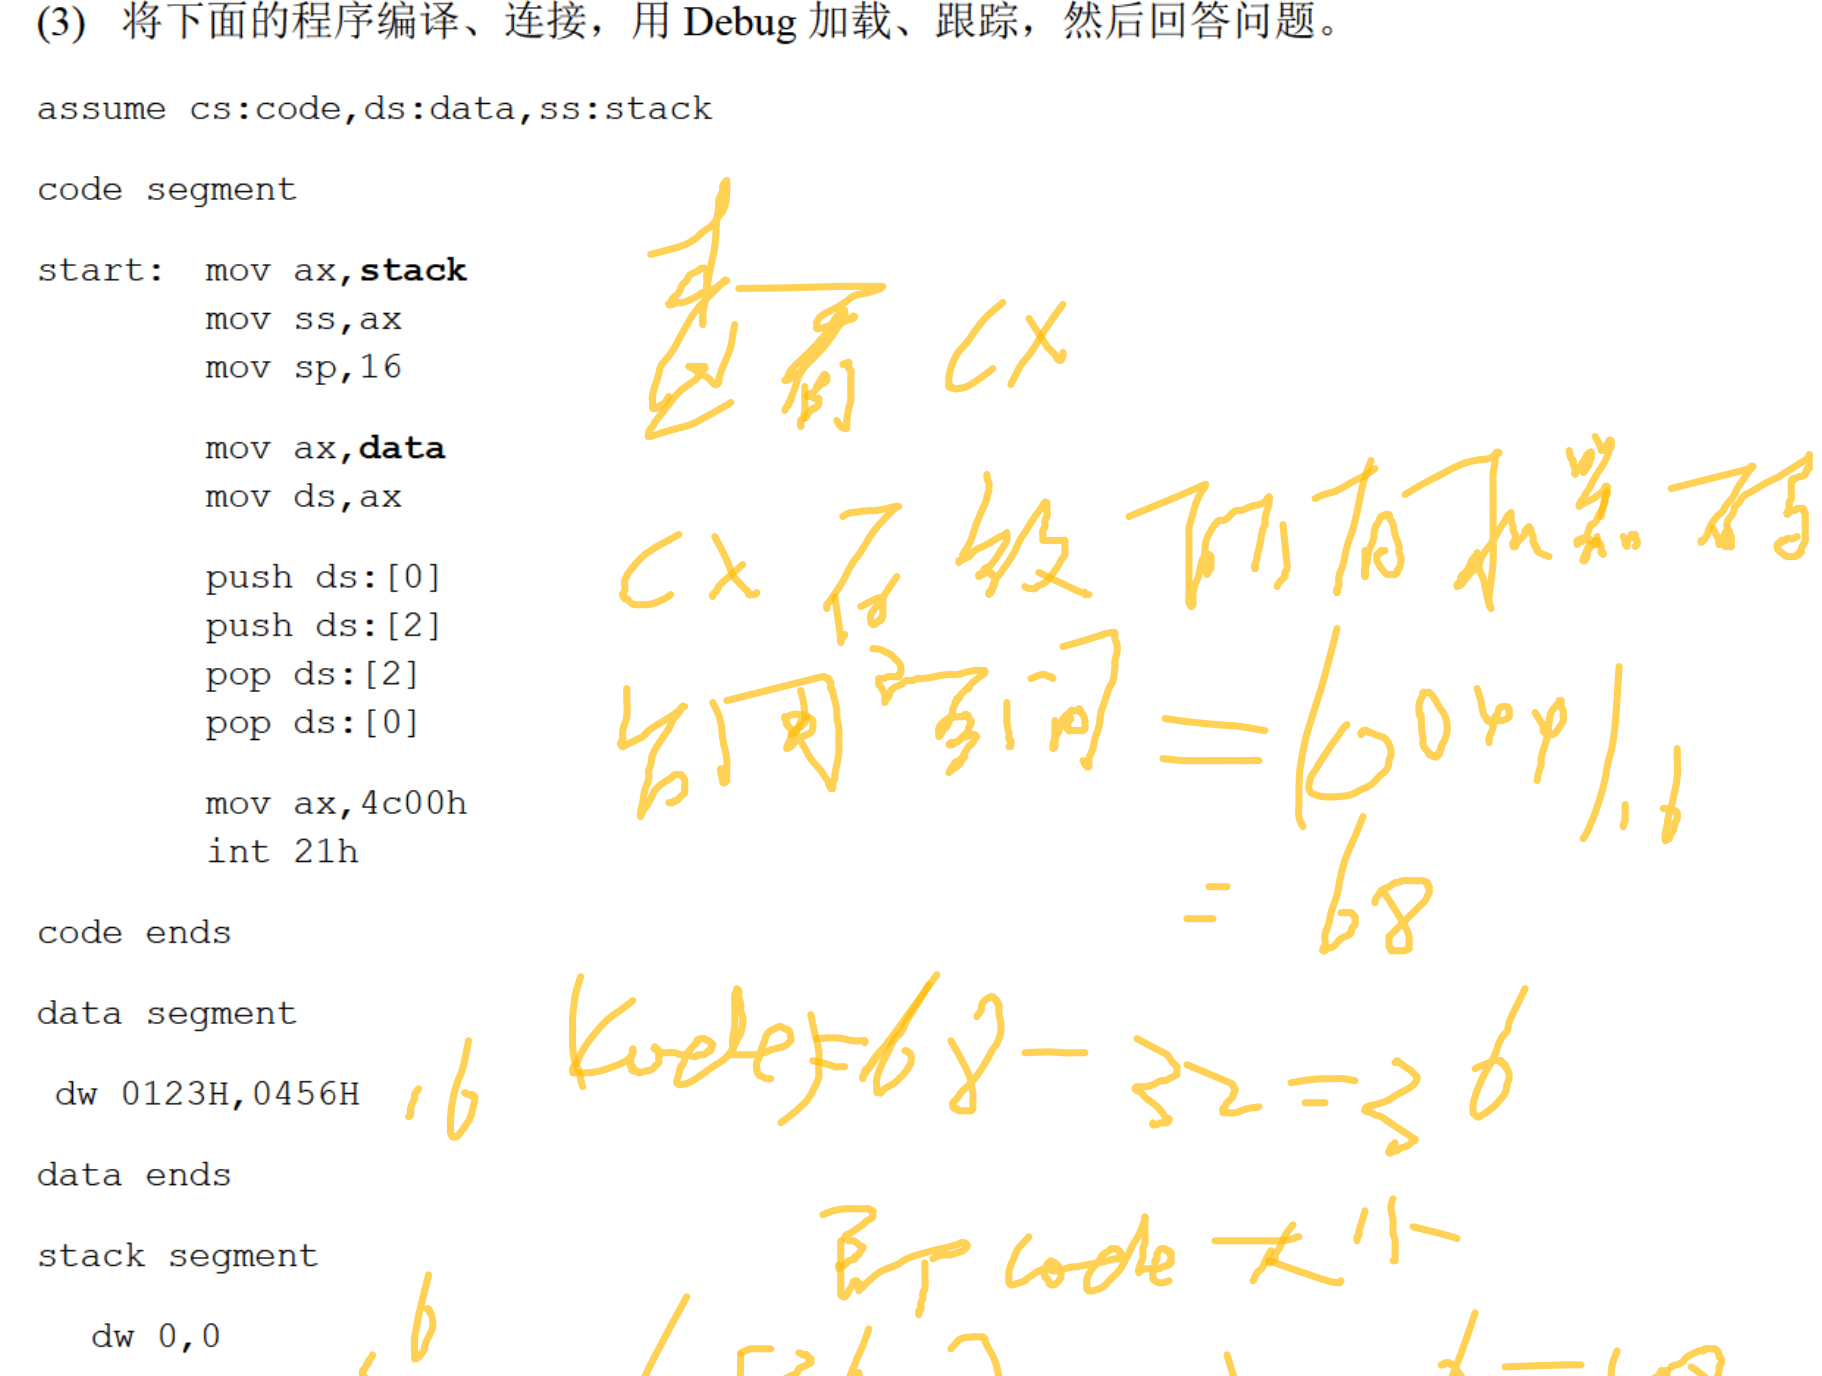 (3) 将下面的程序编译、连接，用 Debug 加载、跟踪，然后回答问题。
assume cs:code,ds:data,ss:stack
code segment
start: mov ax,stack
mov ss,ax
mov sp,16
查看 CX
mov ax,data
mov ds,ax
push ds:[0]
push ds:[2]
pop ds:[2]
pop ds:[0]
=68
mov ax,4c00h
int 21h
code ends
data segment
(code)=68-32=36
dw 0123H,0456H 16
data ends
即 code 大小
stack segment
dw 0,0 16